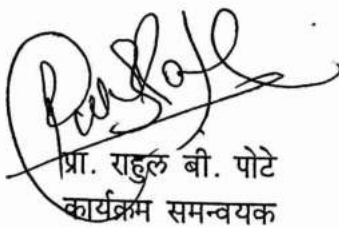 प्रा. राहुल बी. पोटे
कार्यक्रम समन्वयक